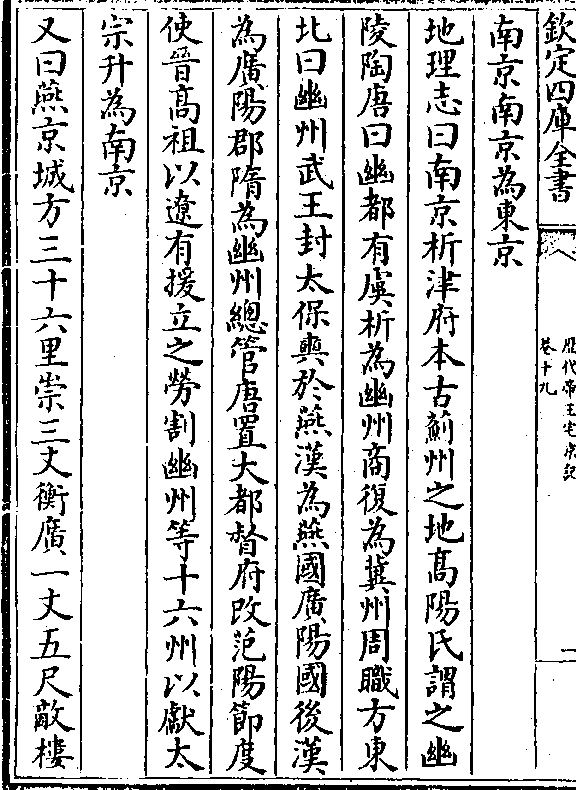 欽定四庫全書
歷代帝王宅京記
卷十九
二
南京南京為東京
地理志曰南京析津府本古薊州之地髙陽氏謂之幽
陵陶唐曰幽都有虞析為幽州商復為冀州周職方東
北曰幽州武王封太保奭於燕漢為燕國廣陽國後漢
為廣陽郡隋為幽州總管唐置大都督府改范陽節度
使晉髙祖以遼有援立之勞割幽州等十六州以獻太
宗升為南京
又曰燕京城方三十六里崇三丈衡廣一丈五尺敵樓